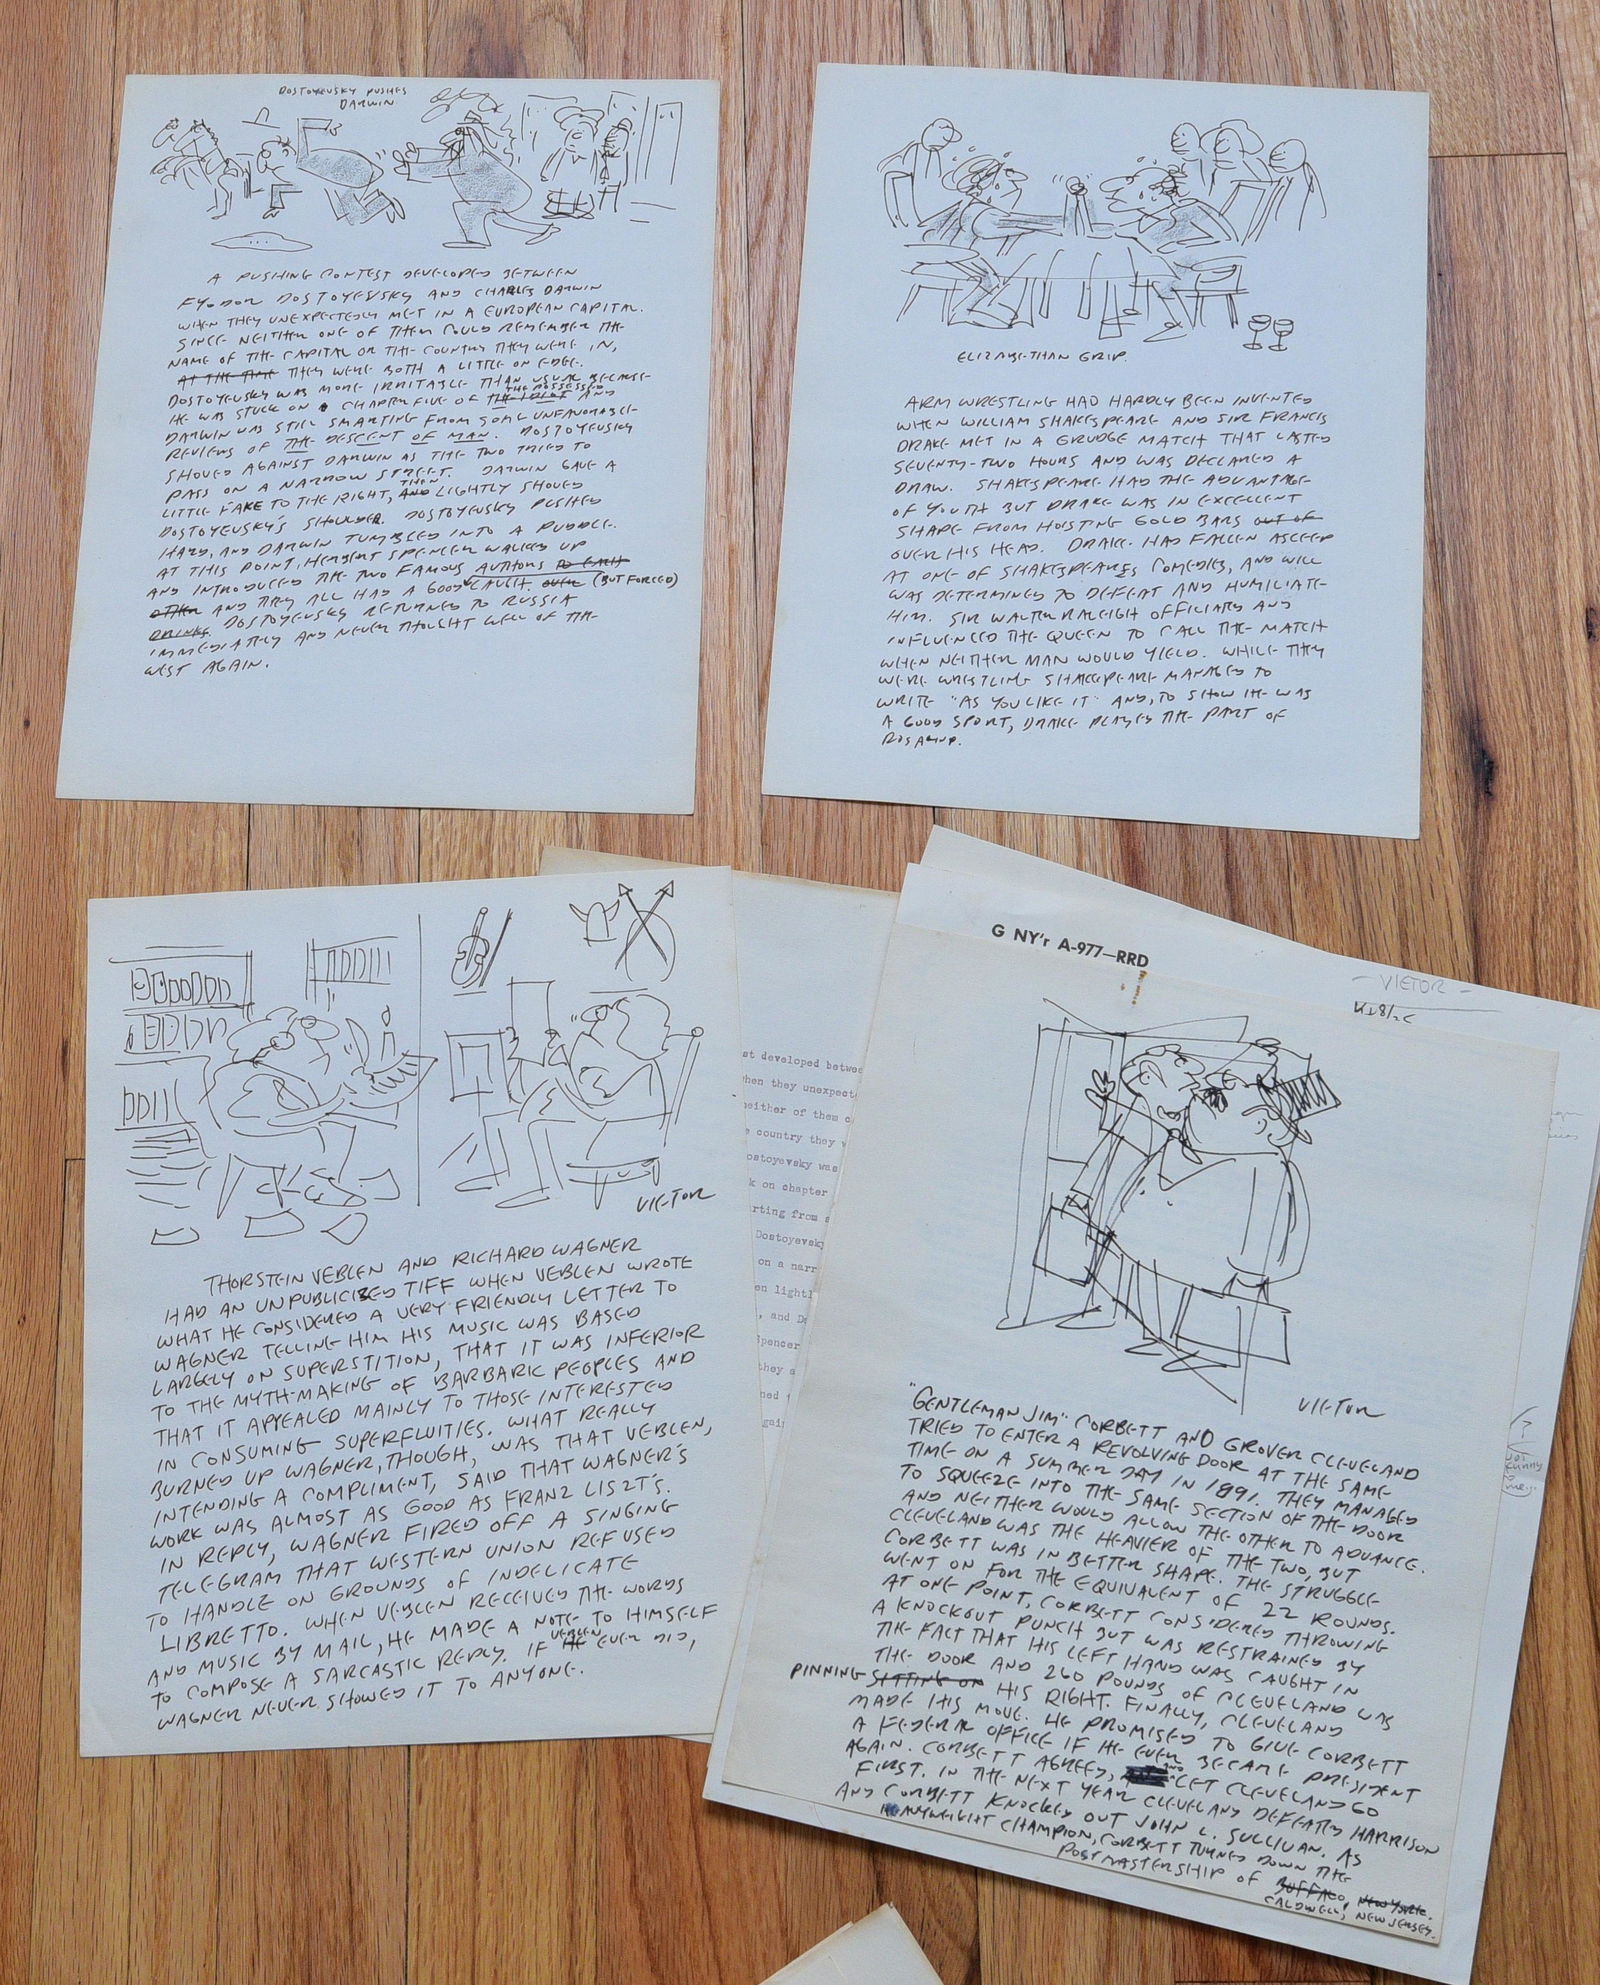 DOSTOYEVSKY PUSHES
DARWIN
A PUSHING CONTEST DEVELOPED BETWEEN
FYODOR DOSTOYEVSKY AND CHARLES DARWIN
WHEN THEY UNEXPECTEDLY MET IN A EUROPEAN CAPITAL.
SINCE NEITHER ONE OF THEM COULD REMEMBER THE
NAME OF THE CAPITAL OR THE COUNTRY THEY WERE IN,
AT THE TIME THEY WERE BOTH A LITTLE ON EDGE.
DOSTOYEVSKY WAS MORE IRRITABLE THAN USUAL BECAUSE
THE POSSESSED
HE WAS STUCK ON CHAPTER FIVE OF THE IDIOT AND
DARWIN WAS STILL SMARTING FROM SOME UNFAVORABLE
REVIEWS OF THE DESCENT OF MAN. DOSTOYEVSKY
SHOVED AGAINST DARWIN AS THE TWO TRIED TO
PASS ON A NARROW STREET. DARWIN GAVE A
THEN
LITTLE FAKE TO THE RIGHT, AND LIGHTLY SHOVED
DOSTOYEVSKY'S SHOULDER. DOSTOYEVSKY PUSHED
HARD, AND DARWIN TUMBLED INTO A PUDDLE.
AT THIS POINT, HERBERT SPENCER WALKED UP
AND INTRODUCED THE TWO FAMOUS AUTHORS TO EACH
OTHER AND THEY ALL HAD A GOOD LAUGH. OVER (BUT FORCED)
DRINKS. DOSTOYEVSKY RETURNED TO RUSSIA
IMMEDIATELY AND NEVER THOUGHT WELL OF THE
WEST AGAIN.
ELIZABETHAN GRIP.
ARM WRESTLING HAD HARDLY BEEN INVENTED
WHEN WILLIAM SHAKESPEARE AND SIR FRANCIS
DRAKE MET IN A GRUDGE MATCH THAT LASTED
SEVENTY-TWO HOURS AND WAS DECLARED A
DRAW. SHAKESPEARE HAD THE ADVANTAGE
OF YOUTH BUT DRAKE WAS IN EXCELLENT
SHAPE FROM HOISTING GOLD BARS OUT OF
OVER HIS HEAD. DRAKE HAD FALLEN ASLEEP
AT ONE OF SHAKESPEARE'S COMEDIES, AND WILL
WAS DETERMINED TO DEFEAT AND HUMILIATE
HIM. SIR WALTER RALEIGH OFFICIATED AND
INFLUENCED THE QUEEN TO CALL THE MATCH
WHEN NEITHER MAN WOULD YIELD. WHILE THEY
WERE WRESTLING SHAKESPEARE MANAGED TO
WRITE "AS YOU LIKE IT" AND, TO SHOW HE WAS
A GOOD SPORT, DRAKE PLAYED THE PART OF
ROSALIND.
VIETOR
THORSTEIN VEBLEN AND RICHARD WAGNER
HAD AN UNPUBLICIZED TIFF WHEN VEBLEN WROTE
WHAT HE CONSIDERED A VERY FRIENDLY LETTER TO
WAGNER TELLING HIM HIS MUSIC WAS BASED
LARGELY ON SUPERSTITION, THAT IT WAS INFERIOR
TO THE MYTH-MAKING OF BARBARIC PEOPLES AND
THAT IT APPEALED MAINLY TO THOSE INTERESTED
IN CONSUMING SUPERFLUITIES. WHAT REALLY
BURNED UP WAGNER, THOUGH, WAS THAT VEBLEN,
INTENDING A COMPLIMENT, SAID THAT WAGNER'S
WORK WAS ALMOST AS GOOD AS FRANZ LISZT'S.
IN REPLY, WAGNER FIRED OFF A SINGING
TELEGRAM THAT WESTERN UNION REFUSED
TO HANDLE ON GROUNDS OF INDELICATE
LIBRETTO. WHEN VEBLEN RECEIVED THE WORDS
AND MUSIC BY MAIL, HE MADE A NOTE TO HIMSELF
VEBLEN
TO COMPOSE A SARCASTIC REPLY. IF HE EVER DID,
WAGNER NEVER SHOWED IT TO ANYONE.
st developed betwee
hen they unexpect
neither of them c
e country they w
ostoyevsky was
k on chapter
rting from s
Dostoyevsky
on a narr
en lightl
, and Da
Spencer
they a
ned t
gain
G NY'r A-977—RRD
- VIETOR -
VIETOR
"GENTLEMAN JIM" CORBETT AND GROVER CLEVELAND
TRIED TO ENTER A REVOLVING DOOR AT THE SAME
TIME ON A SUMMER DAY IN 1891. THEY MANAGED
TO SQUEEZE INTO THE SAME SECTION OF THE DOOR
AND NEITHER WOULD ALLOW THE OTHER TO ADVANCE.
CLEVELAND WAS THE HEAVIER OF THE TWO, BUT
CORBETT WAS IN BETTER SHAPE. THE STRUGGLE
WENT ON FOR THE EQUIVALENT OF 22 ROUNDS.
AT ONE POINT, CORBETT CONSIDERED THROWING
A KNOCKOUT PUNCH BUT WAS RESTRAINED BY
THE FACT THAT HIS LEFT HAND WAS CAUGHT IN
THE DOOR AND 260 POUNDS OF CLEVELAND WAS
PINNING SITTING ON HIS RIGHT. FINALLY, CLEVELAND
MADE HIS MOVE. HE PROMISED TO GIVE CORBETT
A FEDERAL OFFICE IF HE EVER BECAME PRESIDENT
AGAIN. CORBETT AGREED, AND LET CLEVELAND GO
FIRST. IN THE NEXT YEAR CLEVELAND DEFEATED HARRISON
AND CORBETT KNOCKED OUT JOHN L. SULLIVAN. AS
HEAVYWEIGHT CHAMPION, CORBETT TURNED DOWN THE
POSTMASTERSHIP OF BUFFALO, NEW YORK.
CALDWELL, NEW JERSEY.
not
funny
me.